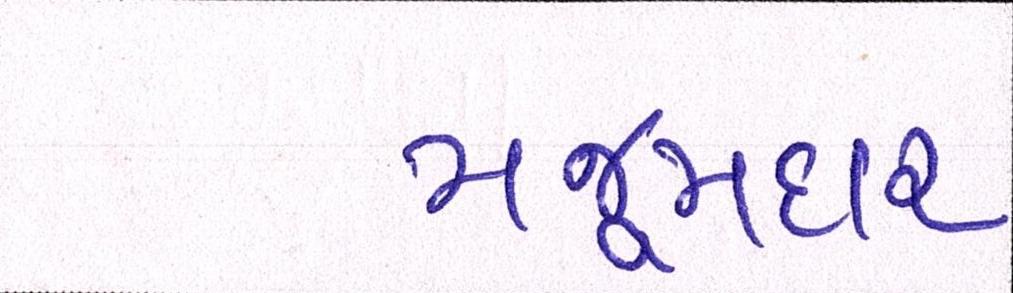 મજૂમદાર